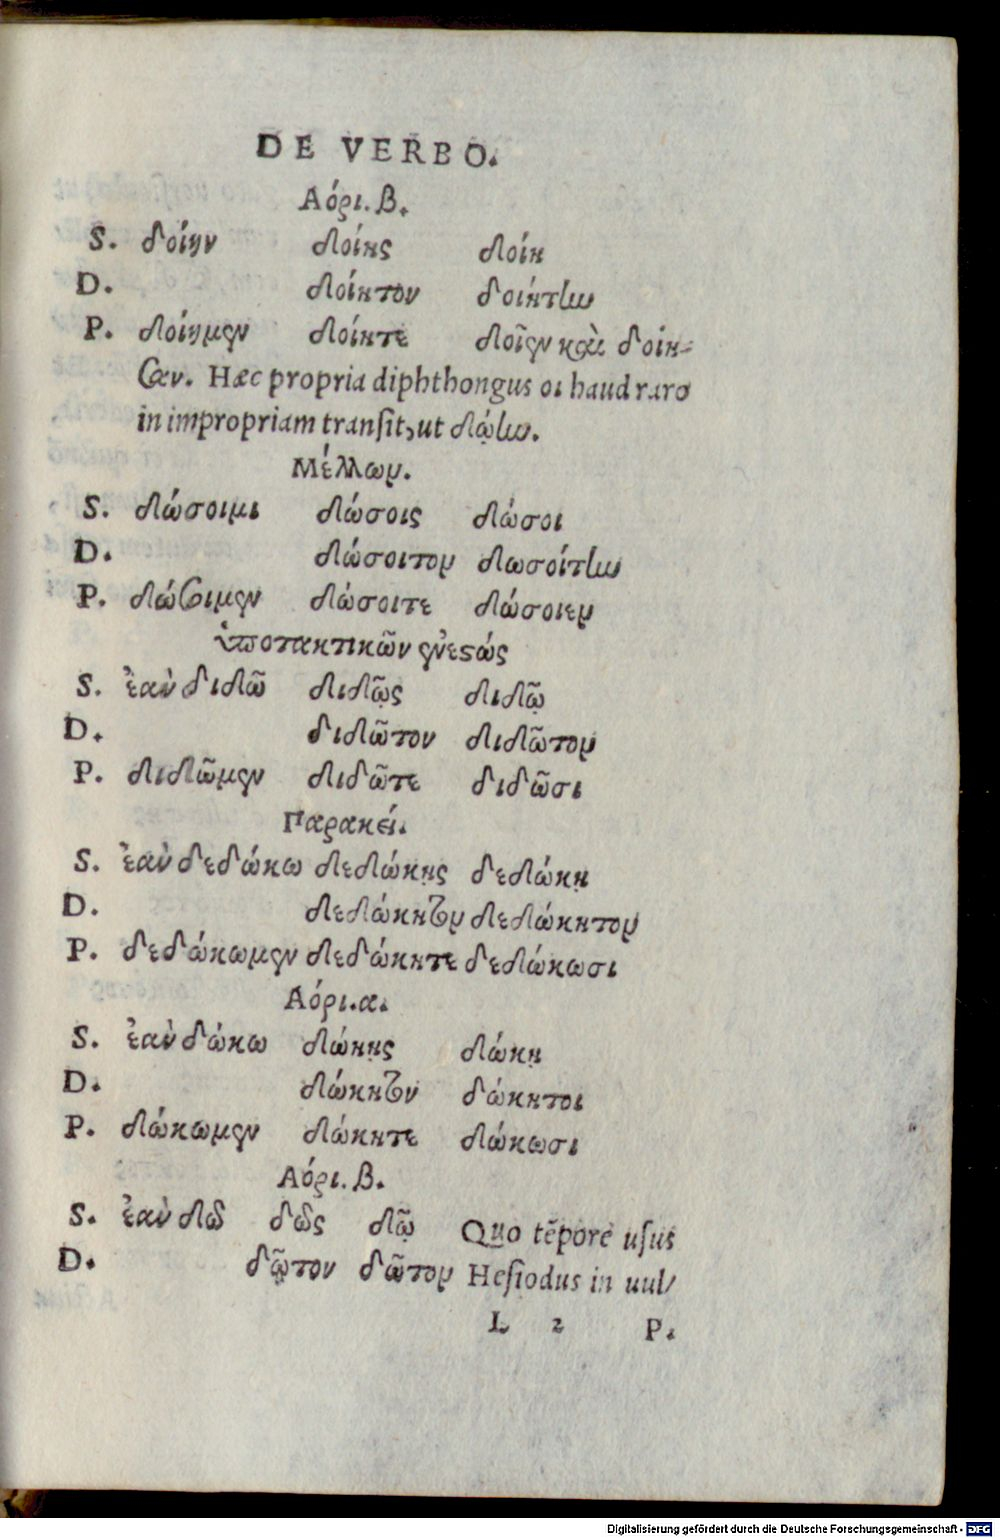 DE VERBO.
Ἀόρι. β.
S. δοίην δοίης δοίη
D. δοίητον δοιήτην
P. δοίημεν δοίητε δοῖεν καὶ δοίη-
σαν. Hæc propria diphthongus οι haud raro
in impropriam transit, ut δῴην.
Μέλλων.
S. δώσοιμι δώσοις δώσοι
D. δώσοιτον δωσοίτην
P. δώσοιμεν δώσοιτε δώσοιεν
ὑποτακτικῶν ἐνεστώς
S. ἐὰν διδῶ διδῷς διδῷ
D. διδῶτον διδῶτον
P. διδῶμεν διδῶτε διδῶσι
Παρακεί.
S. ἐὰν δεδώκω δεδώκῃς δεδώκῃ
D. δεδώκητον δεδώκητον
P. δεδώκωμεν δεδώκητε δεδώκωσι
Ἀόρι. α.
S. ἐὰν δώκω δώκῃς δώκῃ
D. δώκητον δώκητοι
P. δώκωμεν δώκητε δώκωσι
Ἀόρι. β.
S. ἐὰν δῶ δῶς δῷ Quo tẽpore usus
D. δῷτον δῶτον Hesiodus in uul/
L 2 P.
Digitalisierung gefördert durch die Deutsche Forschungsgemeinschaft - DFG